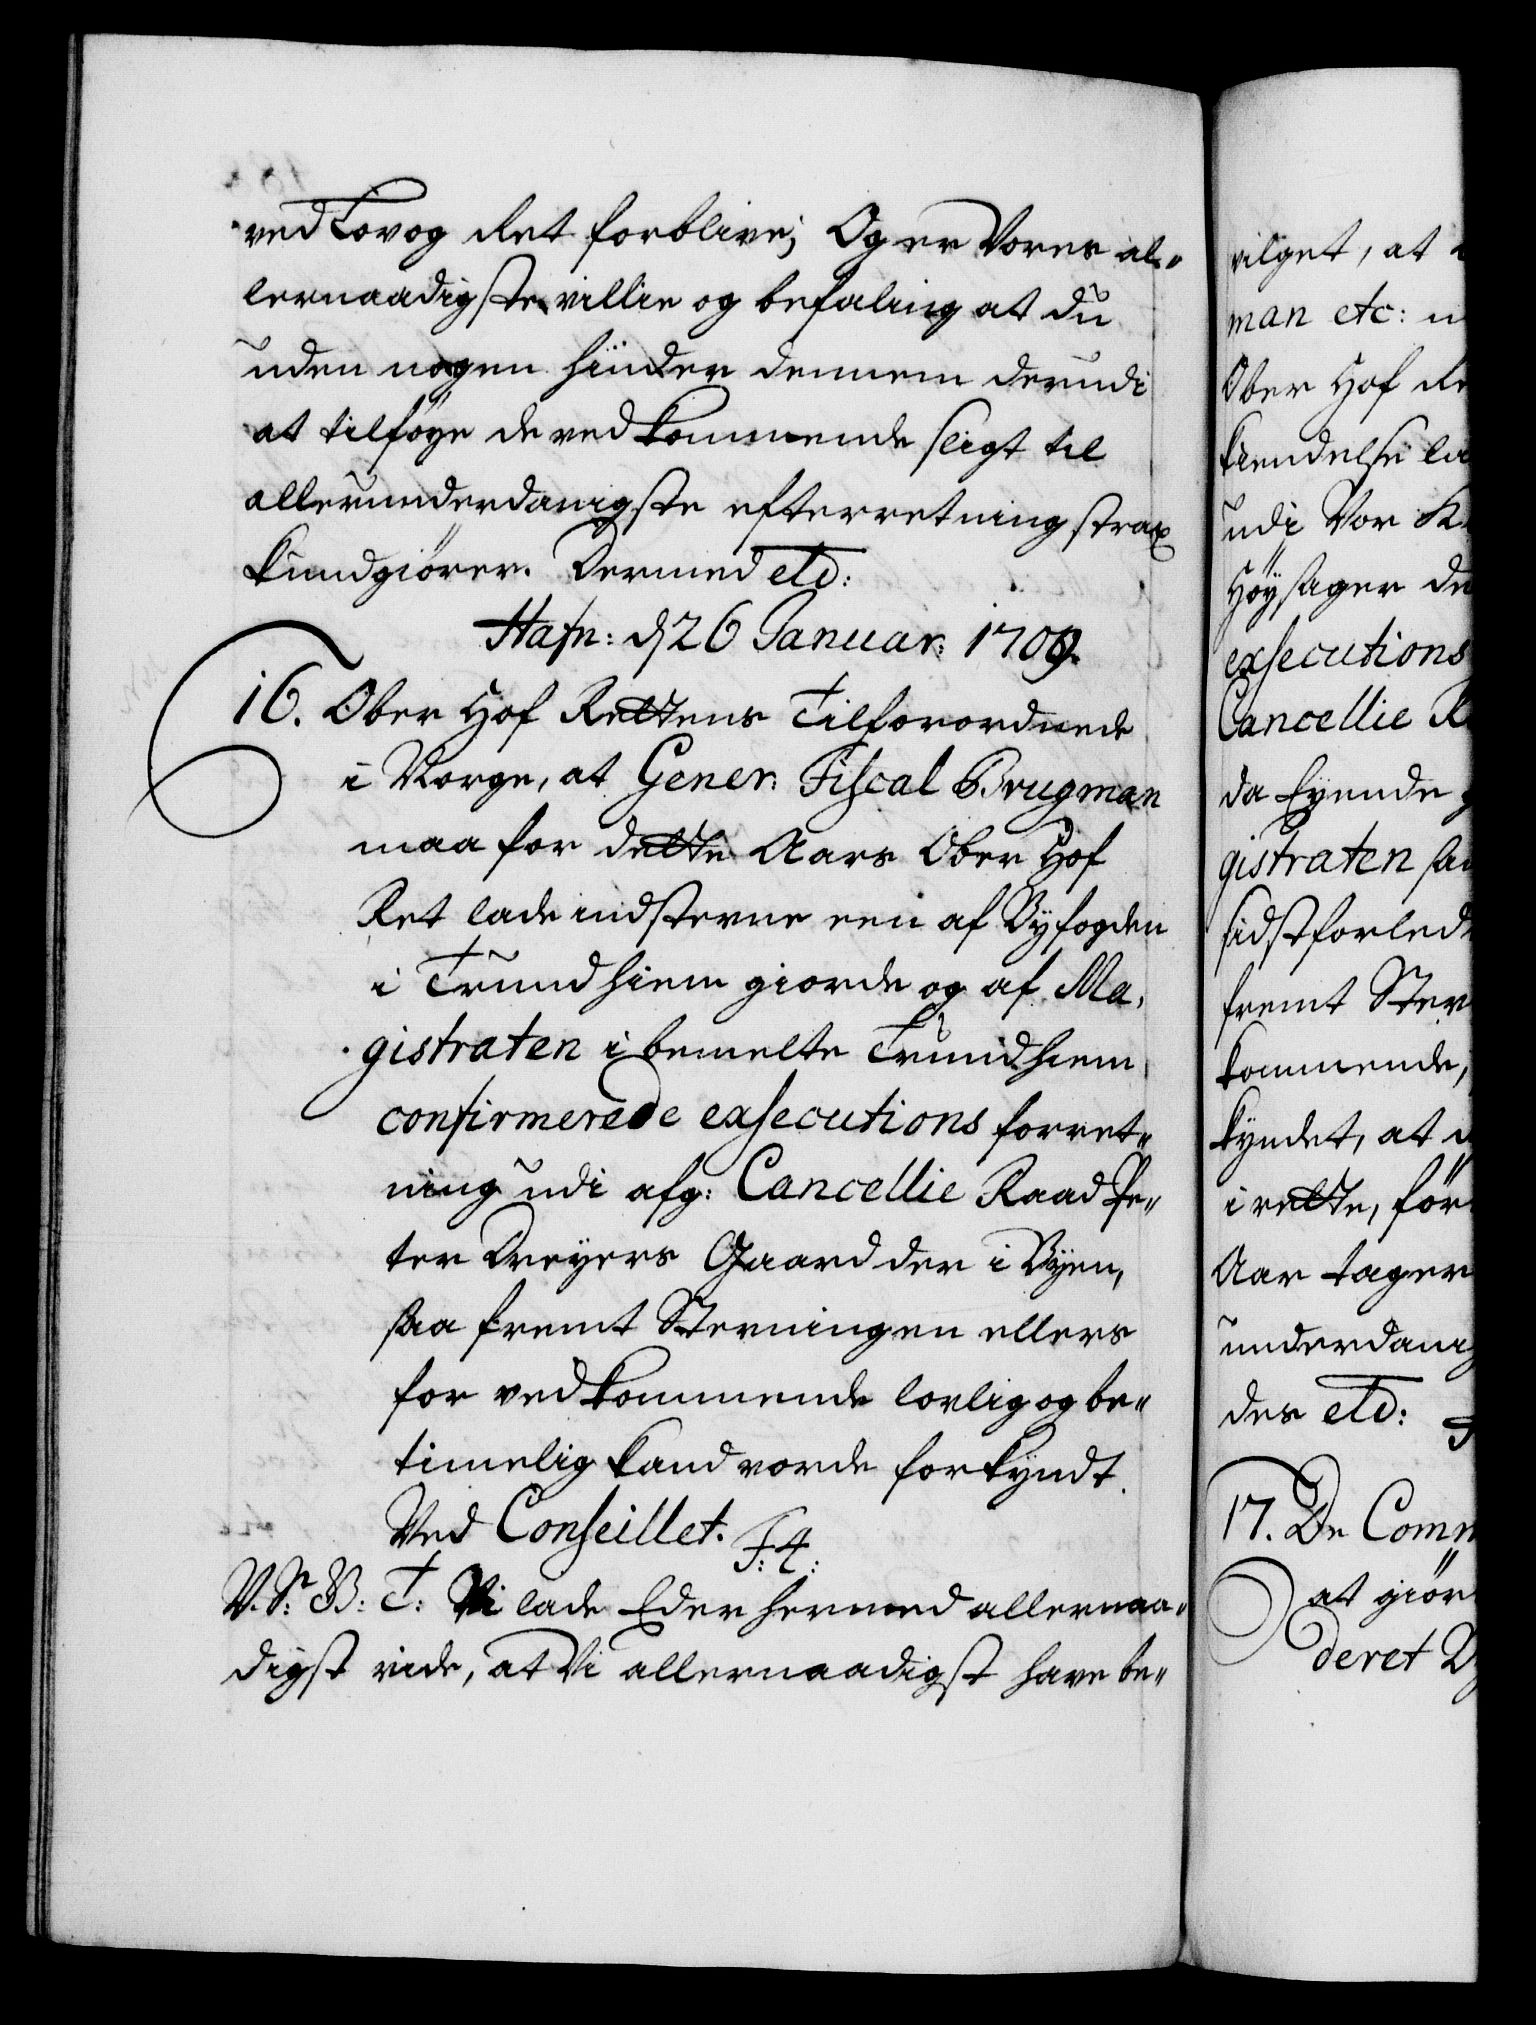 ved Lov og Ret forblive; Og er Vores al-
lernaadigste villie og befaling at du
uden nogen hinder dennem derudi
at tilföye de vedkommende sligt til
allerunderdanigste efterretning strax
kundgiörer. Dermed etc:
Hafn: d 26 Januar: 1709.
16. Ober Hof Rettens Tilforordnede
i Norge, at Gener: Fiscal Brugman
maa for dette Aars Ober Hof
Ret lade indstevne een af Byfogden
i Trundhiem giorde og af Ma-
gistraten i bemelte Trundhiem
confirmerede exsecutions forret-
ning udi afg: Cancellie Raad Pe-
ter Dreyers Gaard der i Byen,
saa fremt Stevningen ellers
for vedkommende lovlig og be-
timelig kand vorde forkyndt.
Ved Conseillet. F: 4:
V. S: B: T: Vi lade Eder hermed allernaa-
digst vide, at Vi allernaadigst have be-
vilget, at
man etc:
Ober Hof Re
kiendelse la
udi Vor
Höysager de
exsecutions
Cancellie R
da Eyende
gistraten sa
sidstforled
fremt Stev
kommende,
kyndet, at
i rette, för
Aar tager
underdanig
des etc:
17. De Comm
at giör
deret